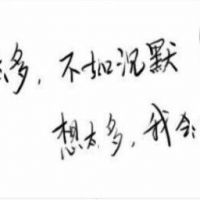 多，不如沉默
想太多，我会